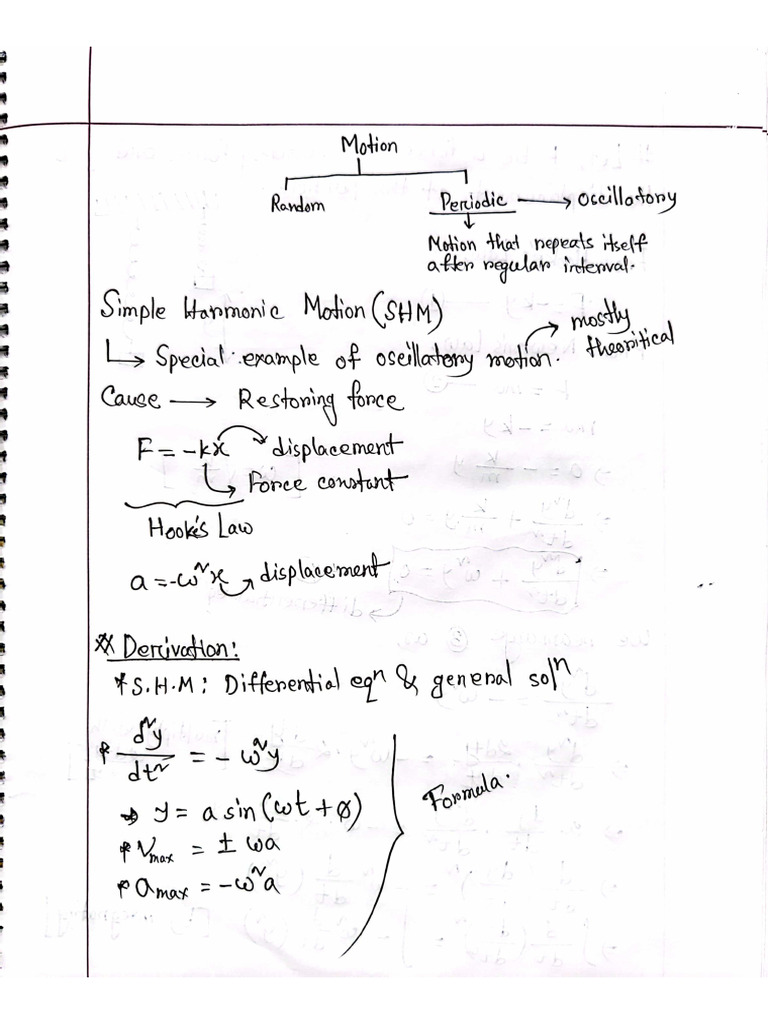 Motion
Random
Periodic → Oscillatory
Motion that repeats itself
after regular interval.
Simple Harmonic Motion (SHM)
↳ Special example of oscillatory motion. → mostly
theoritical
Cause → Restoring force
F = -kx → displacement
↳ Force constant
Hooke's Law
a = -ω²x → displacement
** Derivation:
* S.H.M: Differential eqn & general soln
* d²y/dt² = - ω²y
→ y = a sin (ωt + ø)
Formula.
* Vmax = ± ωa
* amax = -ω²a